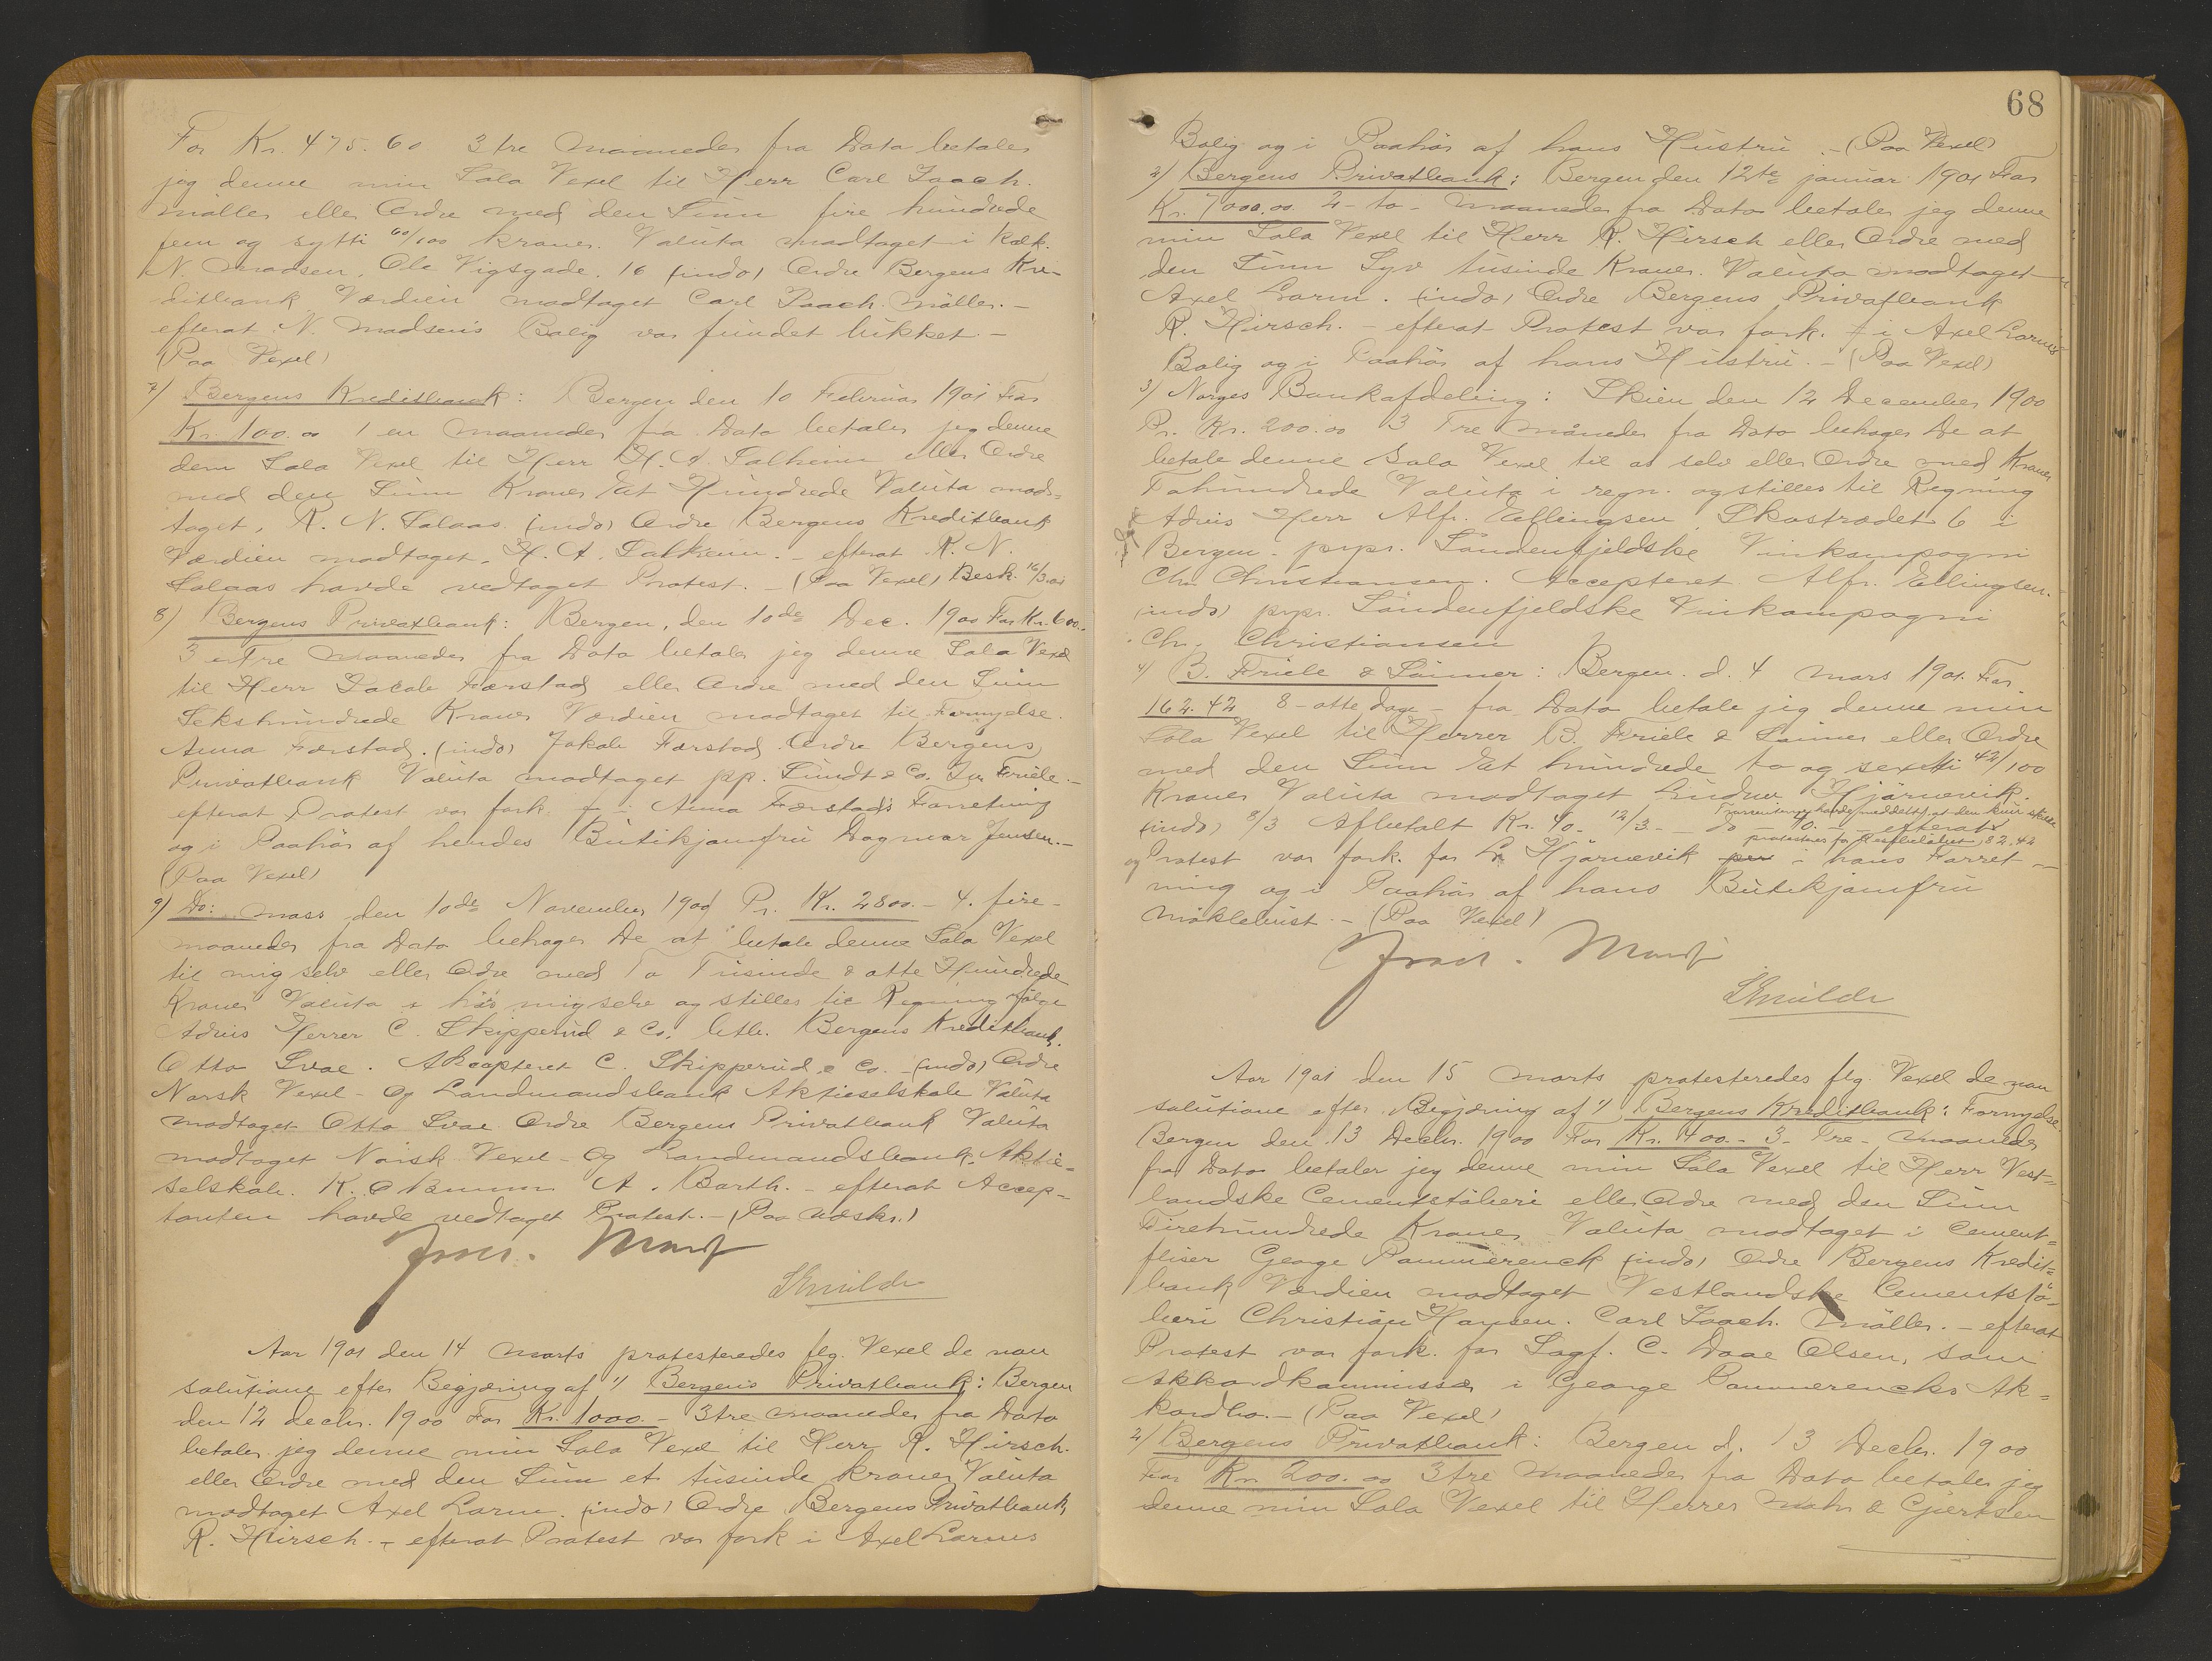 For Kr. 475.60 3 tre Maaneder fra Dato betaler
jeg denne min Sola Vexel til Herr Carl Joach.
Møller eller Ordre med den Sum fire hundrede
fem og sytti 60/100 Kroner. Valuta modtaget i Kalk.
N. Madsen. Ole Vigsgade. 16 (indo) Ordre Bergens Kre-
ditbank Værdien modtaget Carl Joach. Møller. -
efterat N. Madsen's Bolig var fundet lukket. -
(Paa Vexel)
7) Bergens Kreditbank: Bergen den 10 Februar 1901 For
Kr. 100.00 1 en Maaneder fra Dato betaler jeg denne
dem Sola Vexel til Herr H. A. Salheim eller Ordre
med den Sum Kroner Et Hundrede Valuta mod-
taget. R. N. Solaas. (indo) Ordre Bergens Kreditbank
Værdien modtaget. H. A. Salheim. - efterat R. N.
Solaas havde vedtaget Protest. - (Paa Vexel) Besk. 16/3.01
8) Bergens Privatbank: Bergen, den 10de Dec. 1900 For Kr. 600.-
3 Tre Maaneder fra Dato betaler jeg denne Sola Vexel
til Herr Jacob Færstad eller Ordre med den Sum
Sekshundrede Kroner Værdien modtaget til Fornyelse.
Anna Færstad. (indo) Jakob Færstad. Ordre Bergens
Privatbank Valuta modtaget pp. Sundt & Co. Friele. -
efterat Protest var fork. i Anna Færstad's Forretning
og i Paahør af hendes Butikjomfru Dagmar Jensen. -
(Paa Vexel)
9) Do: Moss den 10de November 1900 Pr. Kr. 2800. - 4. fire-
maaneder fra Dato behager De at betale denne Sola Vexel
til mig selv eller Odre med To Tusinde & otte Hundrede
Kroner Valuta i hos mig selv og stilles til Regning ifølge
Advis Herrer C. Skipperud & Co. betb. Bergens Kreditbank.
Otto Svae. Akcepteret C. Skipperud & Co. - (indo) Ordre
Norsk Vexel- og Landmandsbank Aktieselskab Valuta
modtaget Otto Svae Ordre Bergens Privatbank Valuta
modtaget Norsk Vexel- og Landmandsbank. Aktie-
selskab. K. O A. Barth. - efterat Accep-
tanten havde vedtaget Protest. - (Paa Udskr.)
Aar 1901 den 14 Marts protesteredes flg. Vexel de non
solutione efter Begjæring af 1) Bergens Privatbank: Bergen
den 12 decbr. 1900 For Kr. 1000. - 3 tre Maaneder fra Dato
betaler jeg denne min Sola Vexel til Herr R. Hirsch.
eller Ordre med den Sum et tusinde kroner Valuta
modtaget Axel Lorm. (indo) Ordre Bergens Privatbank
R. Hirsch. - efterat Protest var fork i Axel Lorms
68
Bolig og i Paahør af hans Hustru. - (Paa Vexel)
2) Bergens Privatbank: Bergen den 12te januar 1901 For
Kr. 7000.00 2 - to - Maaneder fra Dato betaler jeg denne
min Sola Vexel til Herr R. Hirsch eller Ordre med
den Sum Syv tusinde Kroner. Valuta modtaget
Axel Lorm. (indo) Ordre Bergens Privatbank
R. Hirsch. - efterat Protest var fork. i Axel Lorms
Bolig og i Paahør af hans Hustru. - (Paa Vexel)
3) Norges Bankafdeling: Skien den 12 December 1900
Pr. Kr. 200.00 3 Tre måneder fra Dato behager De at
betale denne Sola Vexel til os selv eller Ordre med Kroner
Tohundrede Valuta i regn. og stilles til Regning
Advis Herr Alfr. Ellingsen, Skostrædet 6 i
Bergen. prpr. Søndenfjeldske Vinkompagni
Chr. Christiansen. Accepteret Alfr. Ellingsen.
(indo) prpr. Søndenfjeldske Vinkompagni
Chr. Christiansen
4) B. Friele & Sønner: Bergen. d. 4 Mars 1901. For
162.42 8 - otte dage - fra Dato betale jeg denne min
Sola Vexel til Herrer B. Friele & Sønner eller Ordre
med den Sum Et hundrede to og sexti 42/100
Kroner Valuta modtaget Hjørnevik.
(indo) 8/3 Afbetalt Kr. 40. - 12/3. - do - 40. - - efterat
protesteres for Restbeløbet 82.42
og Protest var fork. for L. Hjørnevik i hans Forret-
ning og i Paahør af hans Butikjomfru
Møklebust. - (Paa Vexel)
Aar 1901 den 15 Marts protesteredes flg. Vexel de non
solutione efter Begjæring af 1) Bergens Kreditbank: Fornyelse.
Bergen den 13 Decbr. 1900 For Kr. 400. - 3 - Tre - Maaneder
fra Dato betaler jeg denne min Sola Vexel til Herr Vest-
landske Cementstøberi eller Odre med den Sum
Firehundrede Kroner Valuta modtaget i Cement-
fliser George Pommerenck (indo) Ordre Bergens Kredit-
bank Værdien modtaget Vestlandske Cementstø-
beri Christian Hansen. Carl Joach. Møller. - efterat
Protest var fork. for Sagf. C. Daae Olsen, som
Akkordkommissær i George Pommerencks Ak-
kordbo. - (Paa Vexel)
2) Bergens Privatbank: Bergen d. 13 Decbr. 1900
For Kr. 200.00 3 tre Maaneder fra Dato betaler jeg
denne min Sola Vexel til Herrer Mohr & Gjertsen